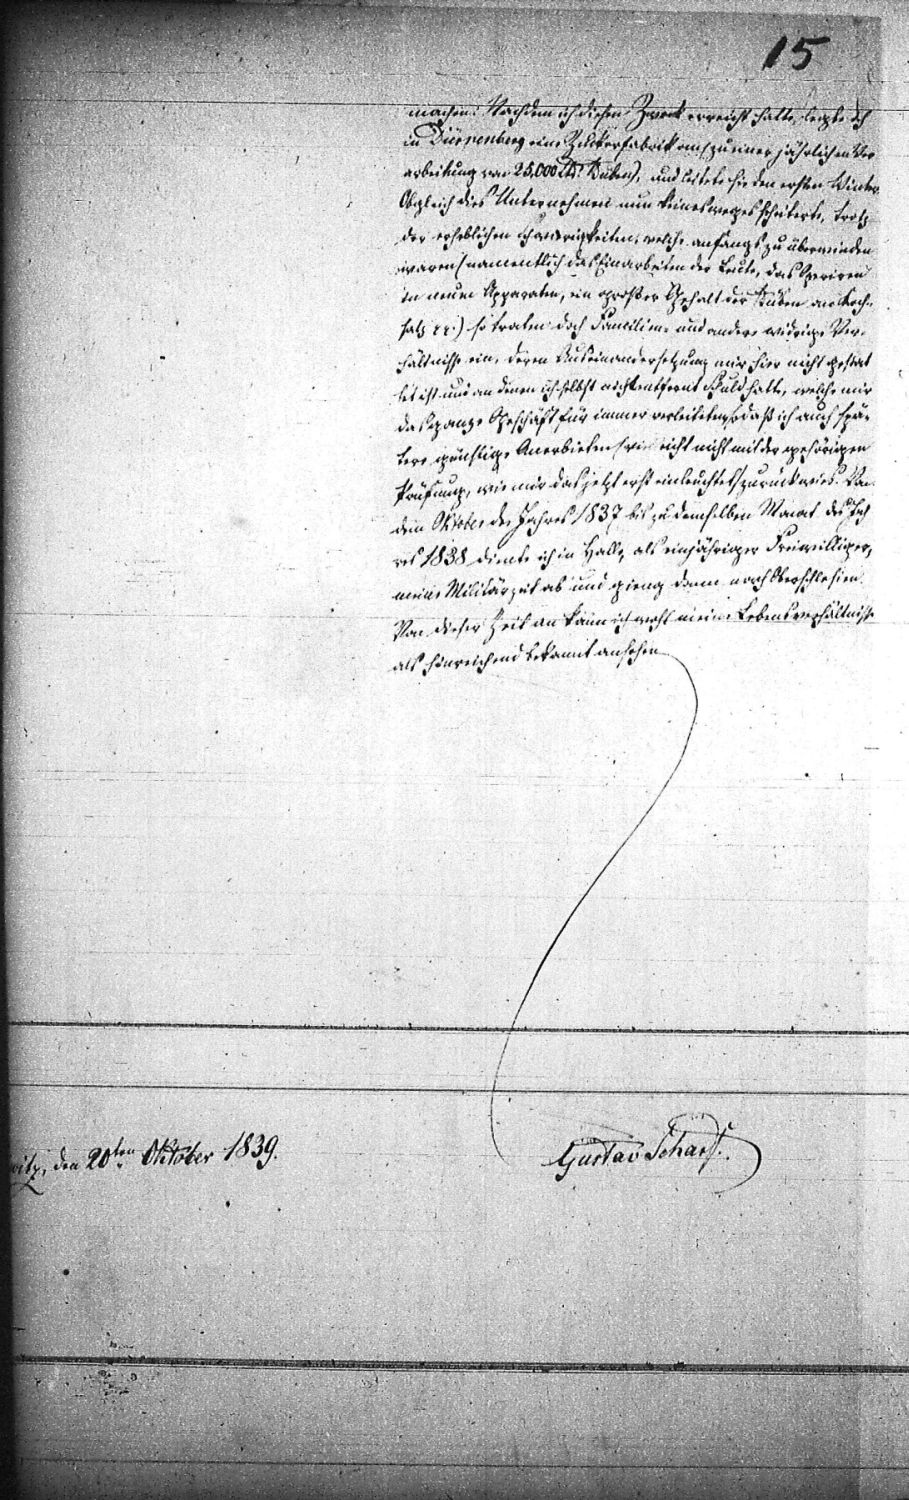 15
machen. Nachdem ich diesen Zweck erreicht hatte, legte ich
in Dürrenberg eine Zuckerfabrik an (zu einer jährlichen Ver
arbeitung von 25,000 Ctr. Rüben), und leitete sie den ersten Winter.
Obgleich dies Unternehmen nun keineswegs scheiterte, trotz
der erheblichen Schwierigkeiten, welche anfangs zu überwinden
waren (namentlich das Einarbeiten der Leute, das Operiren
in neuen Apparaten, ein großer Gehalt der Rüben an Koch-
salz) so traten doch Familien- und andere widrige Ver-
hältnisse ein, deren Auseinandersetzung mir hier nicht gestat
tet ist und an denen ich selbst nicht Schuld hatte, welche mir
das ganze Geschäft für immer verleideten, so daß ich auch spä-
tere günstige Anerbieten nicht mit der gehörigen
Prüfung, wie mir das jetzt erst einleuchtet, zurückwies. Von
dem Oktober des Jahres 1837 bis zu demselben Monat des Jah
res 1838 diente ich in Halle, als einjähriger Freiwilliger,
meine Militärzeit ab und gieng dann nach Oberschlesien.
Von dieser Zeit an kann ich wohl meine Lebensverhältnisse
als hinreichend bekannt ansehen
witz, den 20ten Oktober 1839.
Gustav Scharf.